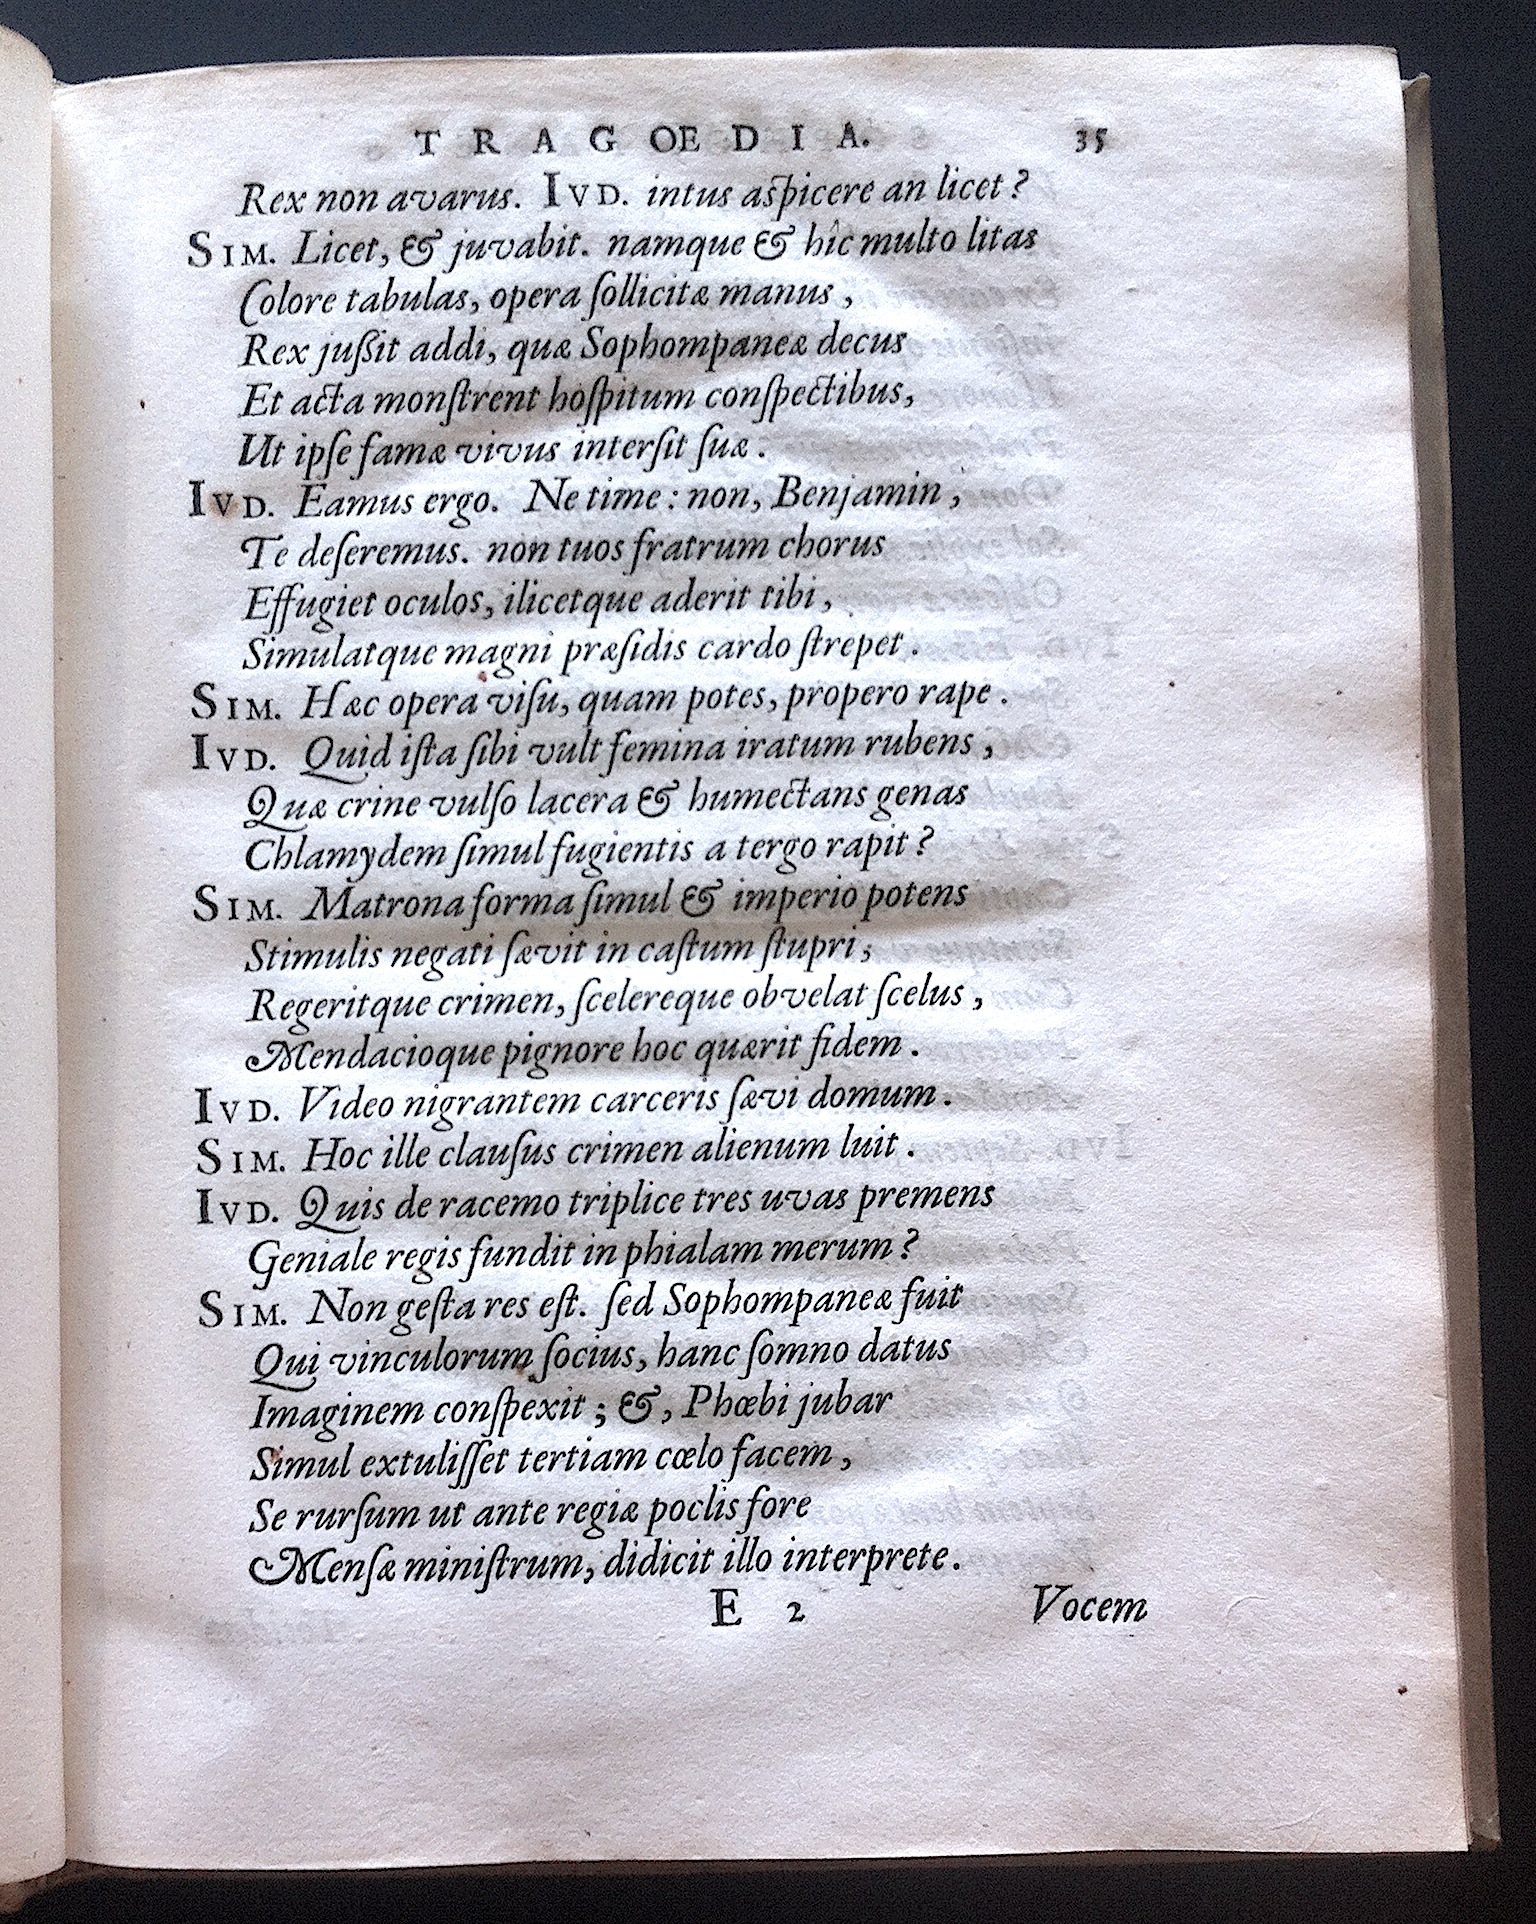 TRAGOEDIA. 35
Rex non avarus. IVD. intus aspicere an licet?
SIM. Licet, & juvabit. namque & hîc multo litas
Colore tabulas, opera ſollicitæ manus,
Rex juſsit addi, quæ Sophompaneæ decus
Et acta monſtrent hoſpitum conſpectibus,
Ut ipſe famæ vivus interſit ſuæ.
IVD. Eamus ergo. Ne time: non, Benjamin,
Te deſeremus. non tuos fratrum chorus
Effugiet oculos, ilicetque aderit tibi,
Simulatque magni præſidis cardo ſtrepet.
SIM. Hæc opera viſu, quam potes, propero rape.
IVD. Quid iſta ſibi vult femina iratum rubens,
Quæ crine vulſo lacera & humectans genas
Chlamydem ſimul fugientis a tergo rapit?
SIM. Matrona forma ſimul & imperio potens
Stimulis negati ſævit in caſtum ſtupri;
Regeritque crimen, ſcelereque obvelat ſcelus,
Mendacioque pignore hoc quærit fidem.
IVD. Video nigrantem carceris ſævi domum.
SIM. Hoc ille clauſus crimen alienum luit.
IVD. Quis de racemo triplice tres uvas premens
Geniale regis fundit in phialam merum?
SIM. Non geſta res eſt. ſed Sophompaneæ fuit
Qui vinculorum ſocius, hanc ſomno datus
Imaginem conſpexit; &, Phœbi jubar
Simul extuliſſet tertiam cœlo facem,
Se rurſum ut ante regiæ poclis fore
Menſæ miniſtrum, didicit illo interprete.
E 2 Vocem